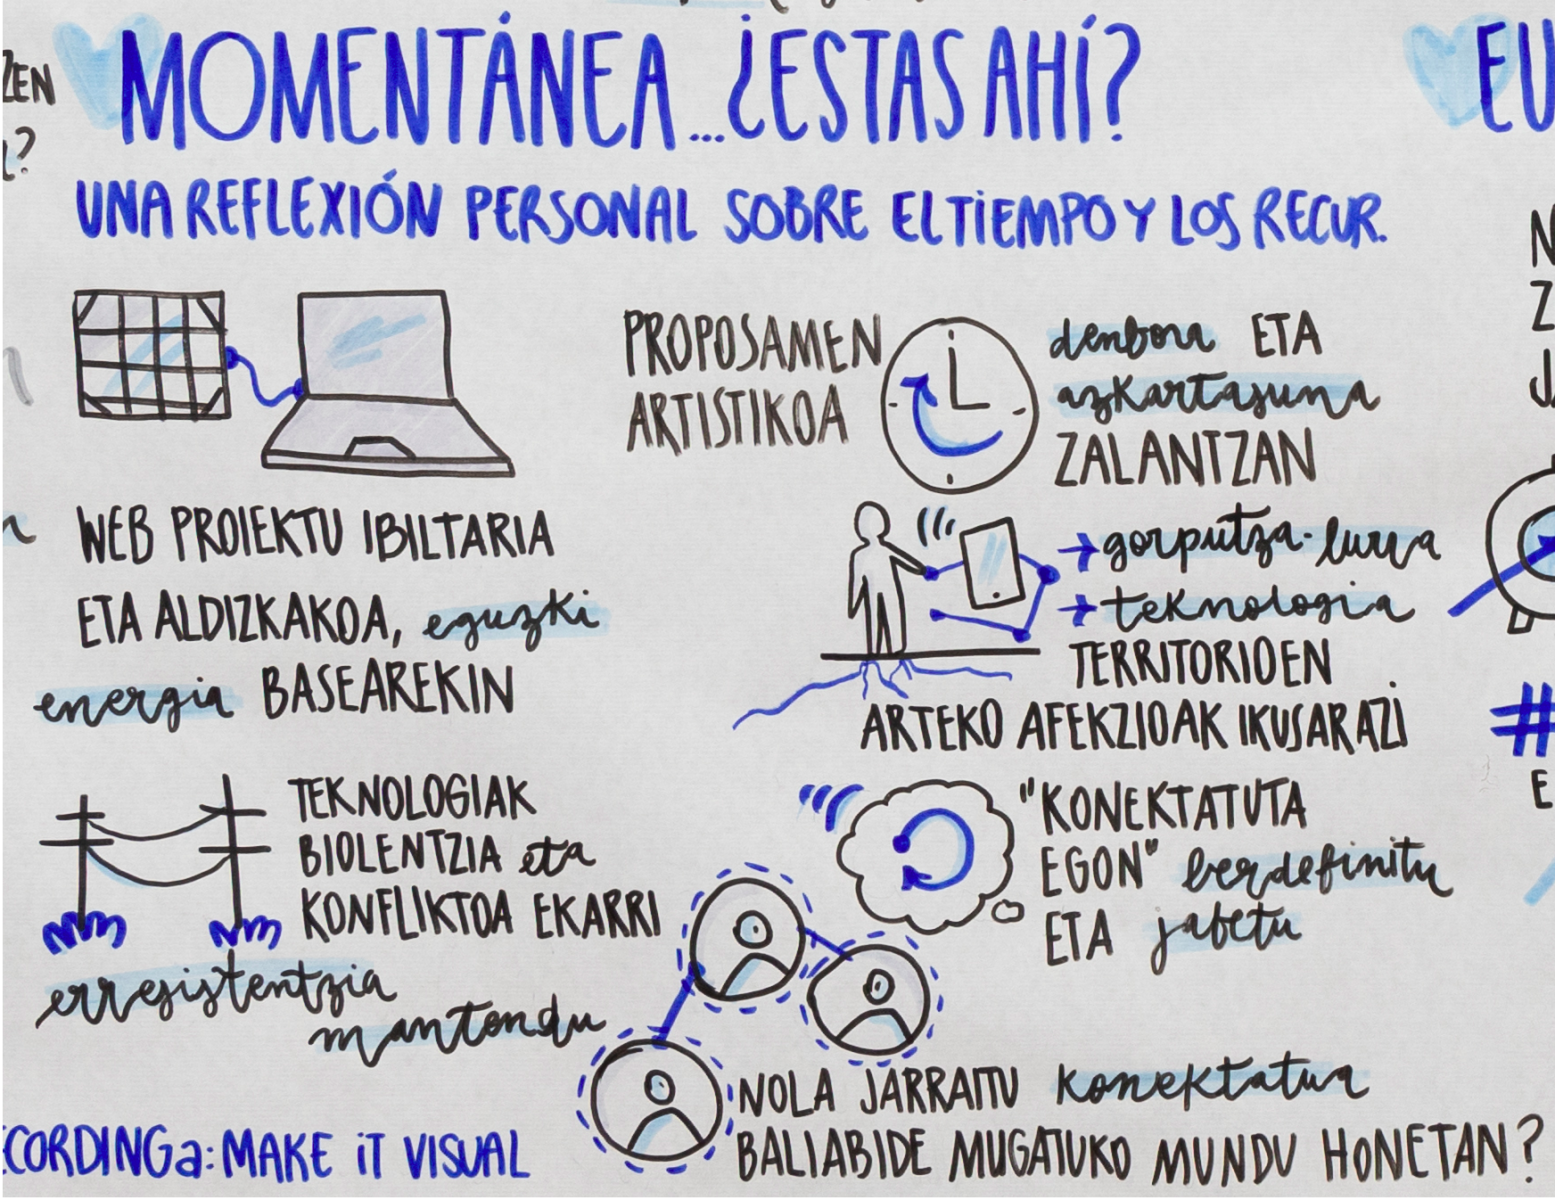 MOMENTÁNEA...¿ESTAS AHÍ?
UNA REFLEXIÓN PERSONAL SOBRE EL TIEMPO Y LOS RECUR.
WEB PROIEKTU IBILTARIA
ETA ALDIZKAKOA, eguzki
energia BASEAREKIN
TEKNOLOGIAK
BIOLENTZIA eta
KONFLIKTOA EKARRI
erresistentzia
mantendu
PROPOSAMEN
ARTISTIKOA
denbora ETA
azkartasuna
ZALANTZAN
→ gorputza-lurra
→ teknologia
TERRITORIOEN
ARTEKO AFEKZIOAK IKUSARAZI
"KONEKTATUTA
EGON" berdefinitu
ETA jabetu
NOLA JARRAITU konektatua
BALIABIDE MUGATUKO MUNDU HONETAN?
CORDINGa: MAKE iT VISUAL
ZEN
?
EU
N
Z
J
#
E